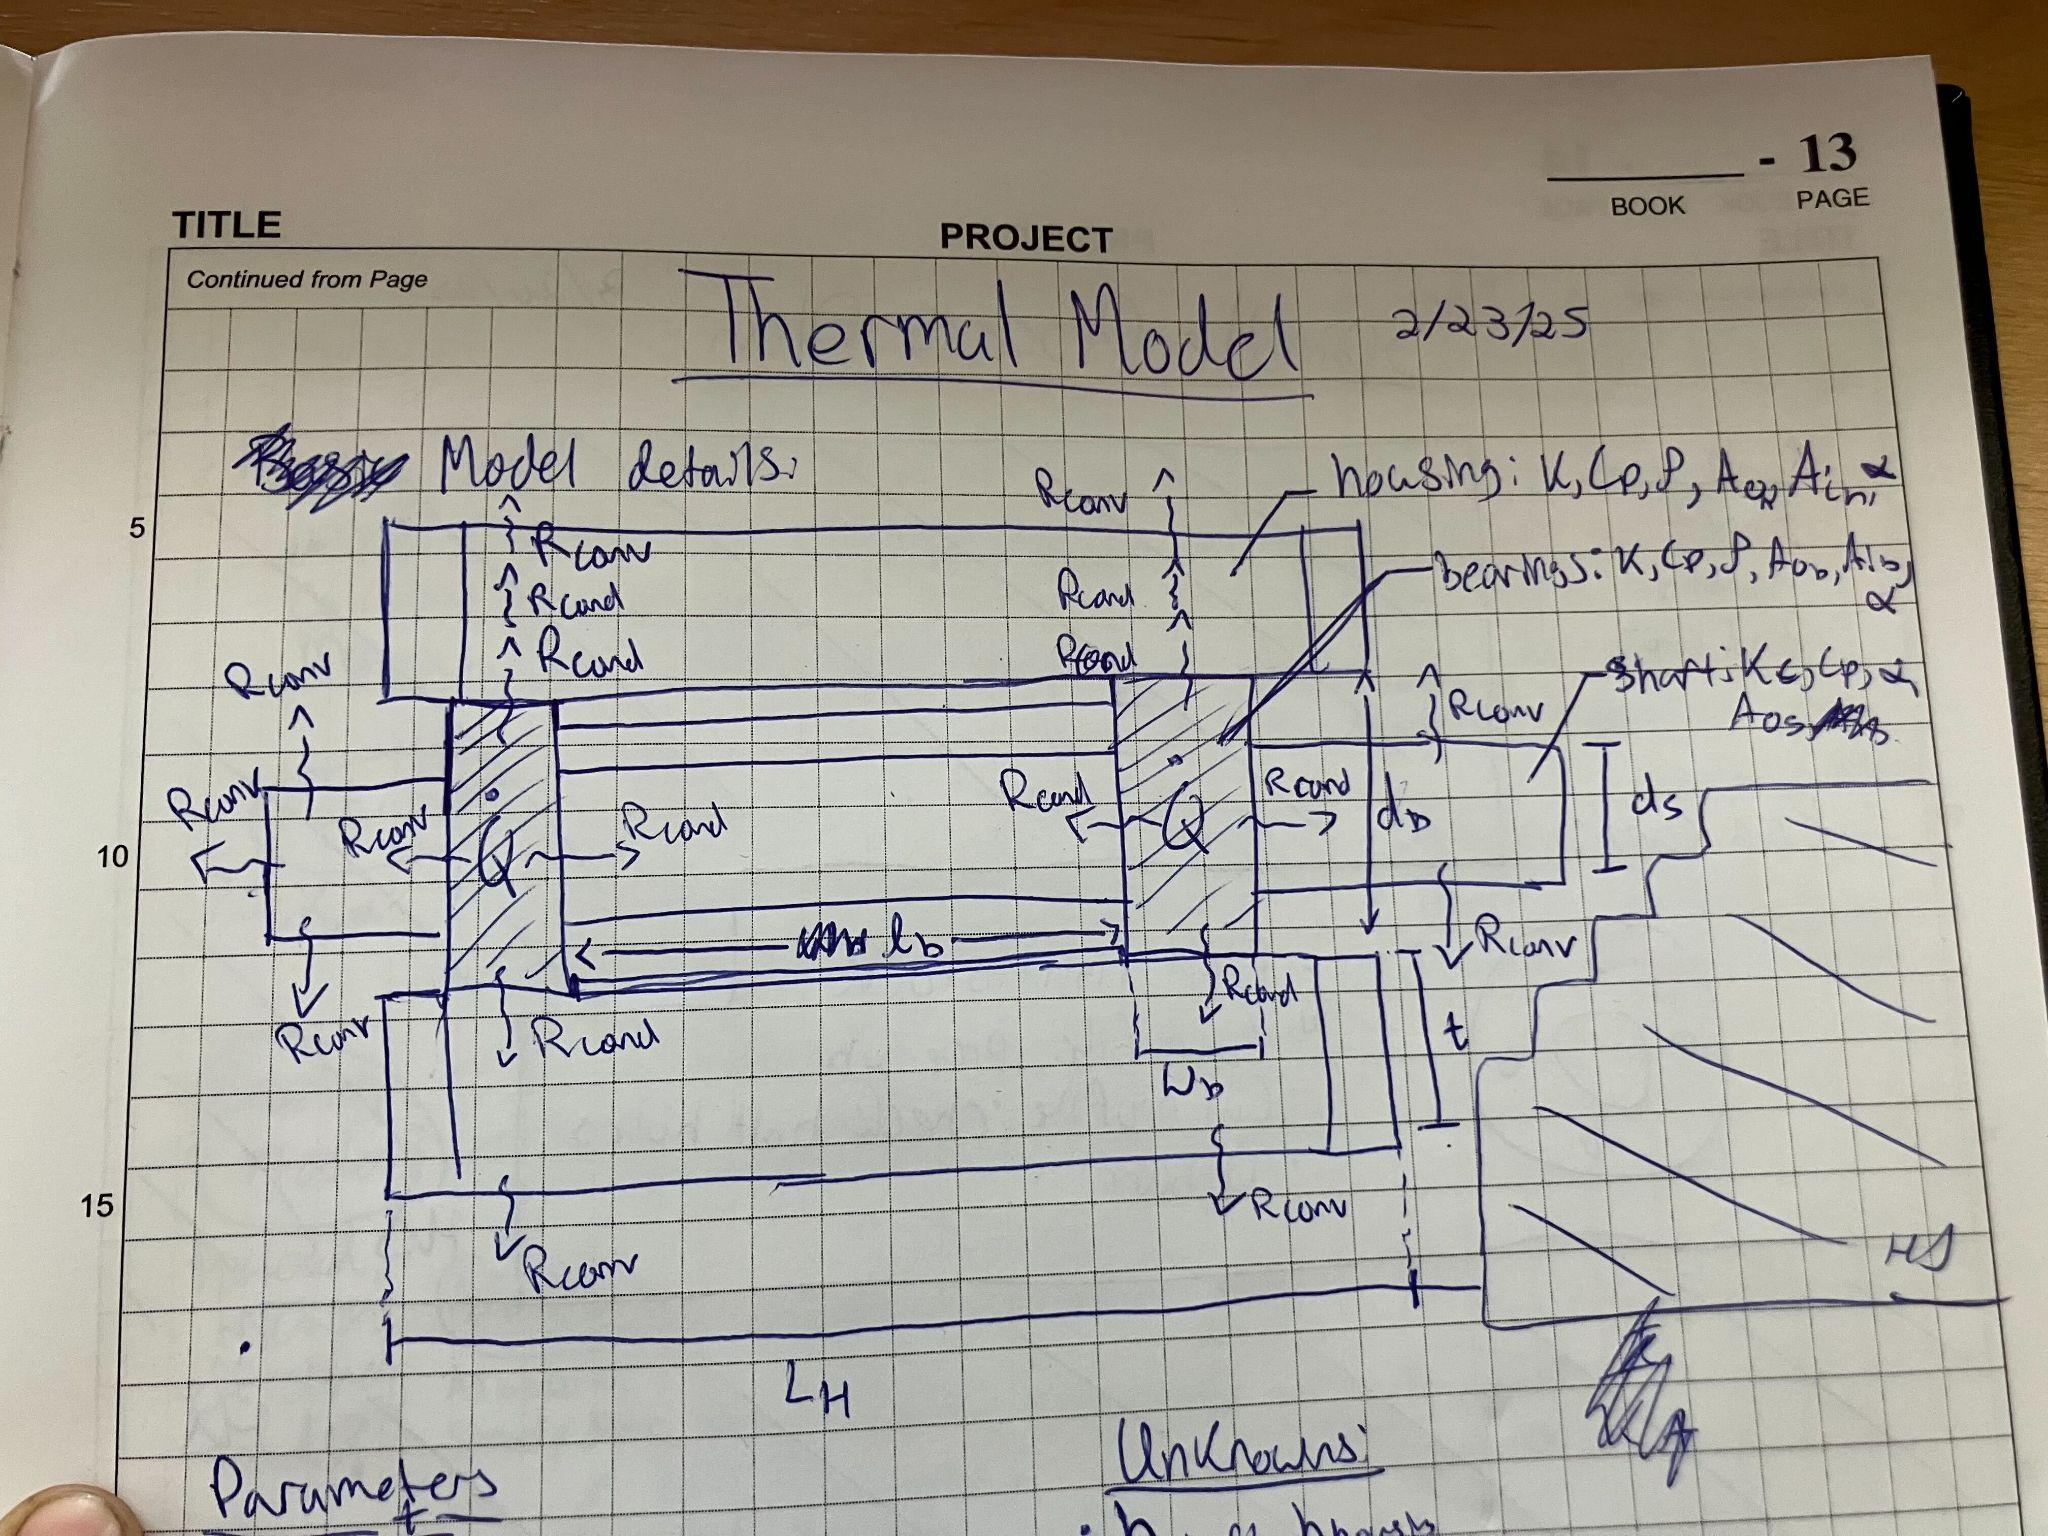 - 13
BOOK PAGE
TITLE
PROJECT
Continued from Page
Thermal Model 2/23/25
Model details:
Rconv
housing: K, Cp, ρ, Aex, Ain, α
5
Rconv
bearings: K, Cp, ρ, Aob, Aib, α
Rcond
Rcond
Rcond
Rcond
shaft: K, Cp, α,
Aos
Rconv
Rconv
Rconv
Rconv
Q
Rcond
Rcond
Q
Rcond
db
ds
10
lb
Rconv
Rconv
Rcond
Rcond
t
Wb
15
Rconv
Rconv
HS
LH
Parameters
t
Unknowns: